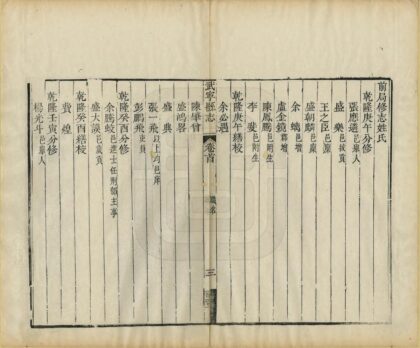 前局修志姓氏
乾隆庚午分修
張應遴邑廩
盛樂邑拔貢
王之臣邑廩
盛朝麟邑廩
余墑邑增
盧金鏡郡增
陳鳳騰邑附生
李斐邑附生
乾隆庚午繕校
余必遇
武寧縣志
卷首
三
陳舉曾
盛鴻畧
盛典
張一飛以上均邑庠
彭鵬飛吏員
乾隆癸酉分修
余騰蛟邑進士任刑部主事
盛大謨邑歲貢
乾隆癸酉繕校
費煌
乾隆壬寅分修
楊光斗邑舉人